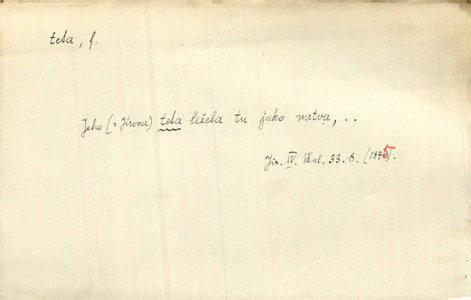 teta, f.
Jeho (= Jírova) teta ležela tu jako mrtva, . .
Jir. IV. Skal. 33. 8. (1875).